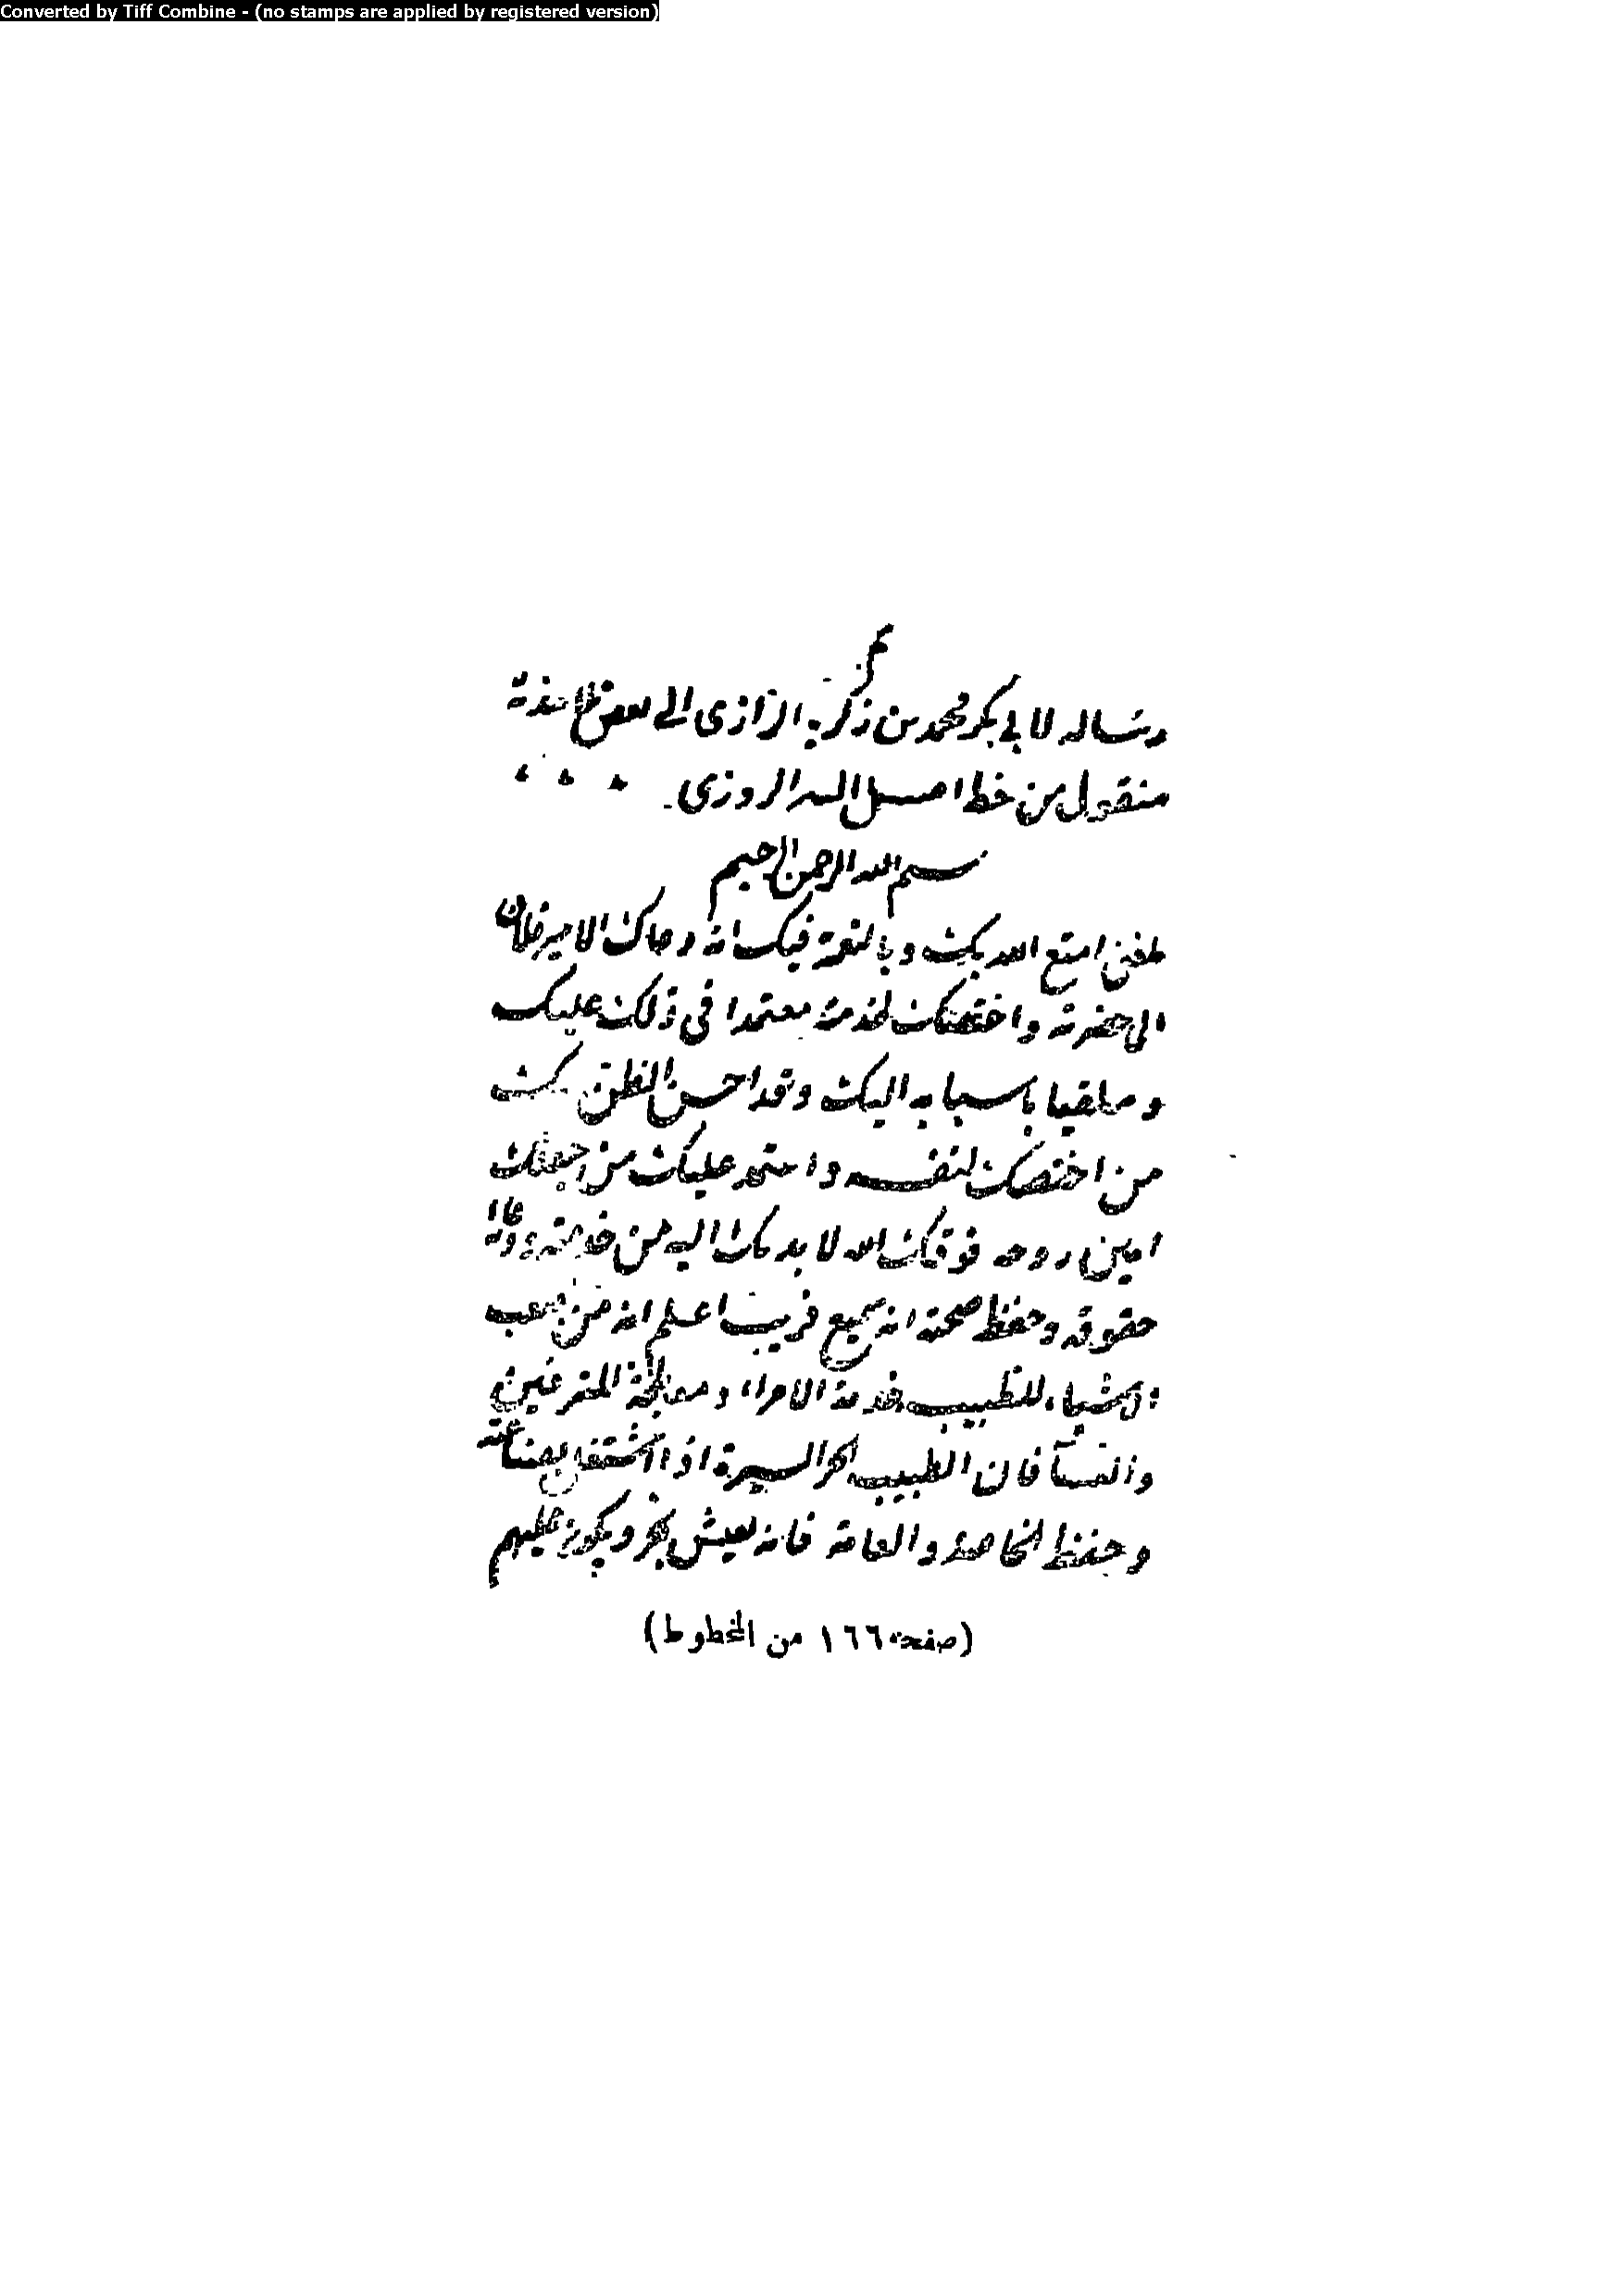 Converted by Tiff Combine - (no stamps are applied by registered version)
رساله لابى بكر محمد بن زكريا الرازى الى بعض تلامذته
منقول من خط اصيل الروزى
بسم الله الرحمن الرحيم
بلغنى امتع الله بك وبالنعمة فيك انه دعاك الامير فلان
الى حضرته واختصك لخدمته معتمدا فى ذلك عليك
وملقيا باسبابه اليك وقد احسن الظن بك
من اختصك لنفسه واعتمد عليك من اجعلك
امين روحه فوفقك الله لا بد لك اليه من خدمته ورعاية
حقوقه وحفظ صحته انه سميع قريب اعلم انه من اصعب
الاشياء للطبيب خدمة الامراء ومعالجة المترفين
والنسآ فان الطبيب الحر السيرة اذا اشتغل بصناعته
وحفظ الخاصة والعامة فانه يعيش بخير ويكون عليهم
(صفحة ١٦٦ من المخطوط)